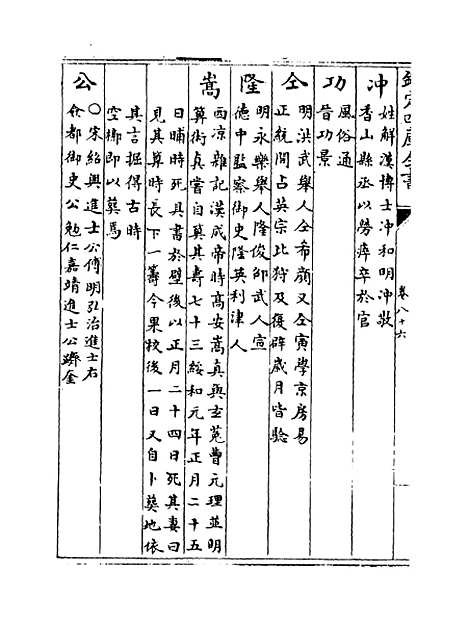 欽定四庫全書
卷八十六
冲
姓解漢博士冲和明冲敬
香山縣丞以勞瘁卒於官
功
風俗通
晉功景
仝
明洪武舉人仝希顔又仝寅學京房易
正統間占英宗北狩及復辟歲月皆驗
隆
明永樂舉人隆俊邵武人宣
德中監察御史隆英利津人
嵩
西凉雜記漢成帝時高安嵩真與𤣥菟曹元理並明
算術真嘗自算其壽七十三綏和元年正月二十五
日晡時死具書於壁後以正月二十四日死其妻曰
見其算時長下一籌今果校後一日又自卜葬地依
其言掘得古時
空槨即以葬焉
公
○宋紹興進士公傅明弘治進士右
僉都御史公勉仁嘉靖進士公躋奎